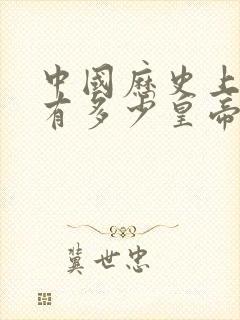 中國歷史上
有多少皇帝
冀世忠